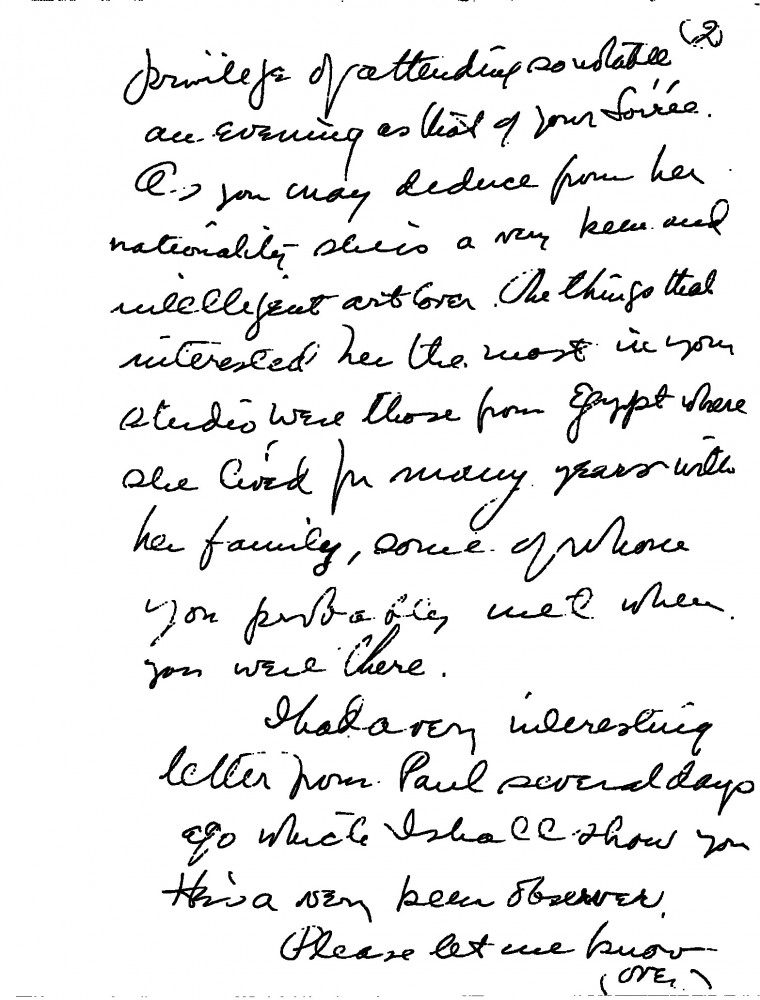 (2
privilege of attending so notable
an evening as that of your Soirée.
As you may deduce from her
nationality she is a very keen and
intelligent art lover. The things that
interested her the most in your
studio were those from Egypt where
she lived for many years with
her family, some of whom
you probably met when
you were there.
I had a very interesting
letter from Paul several days
ago which I shall show you
He is a very keen observer.
Please let me know
(over)